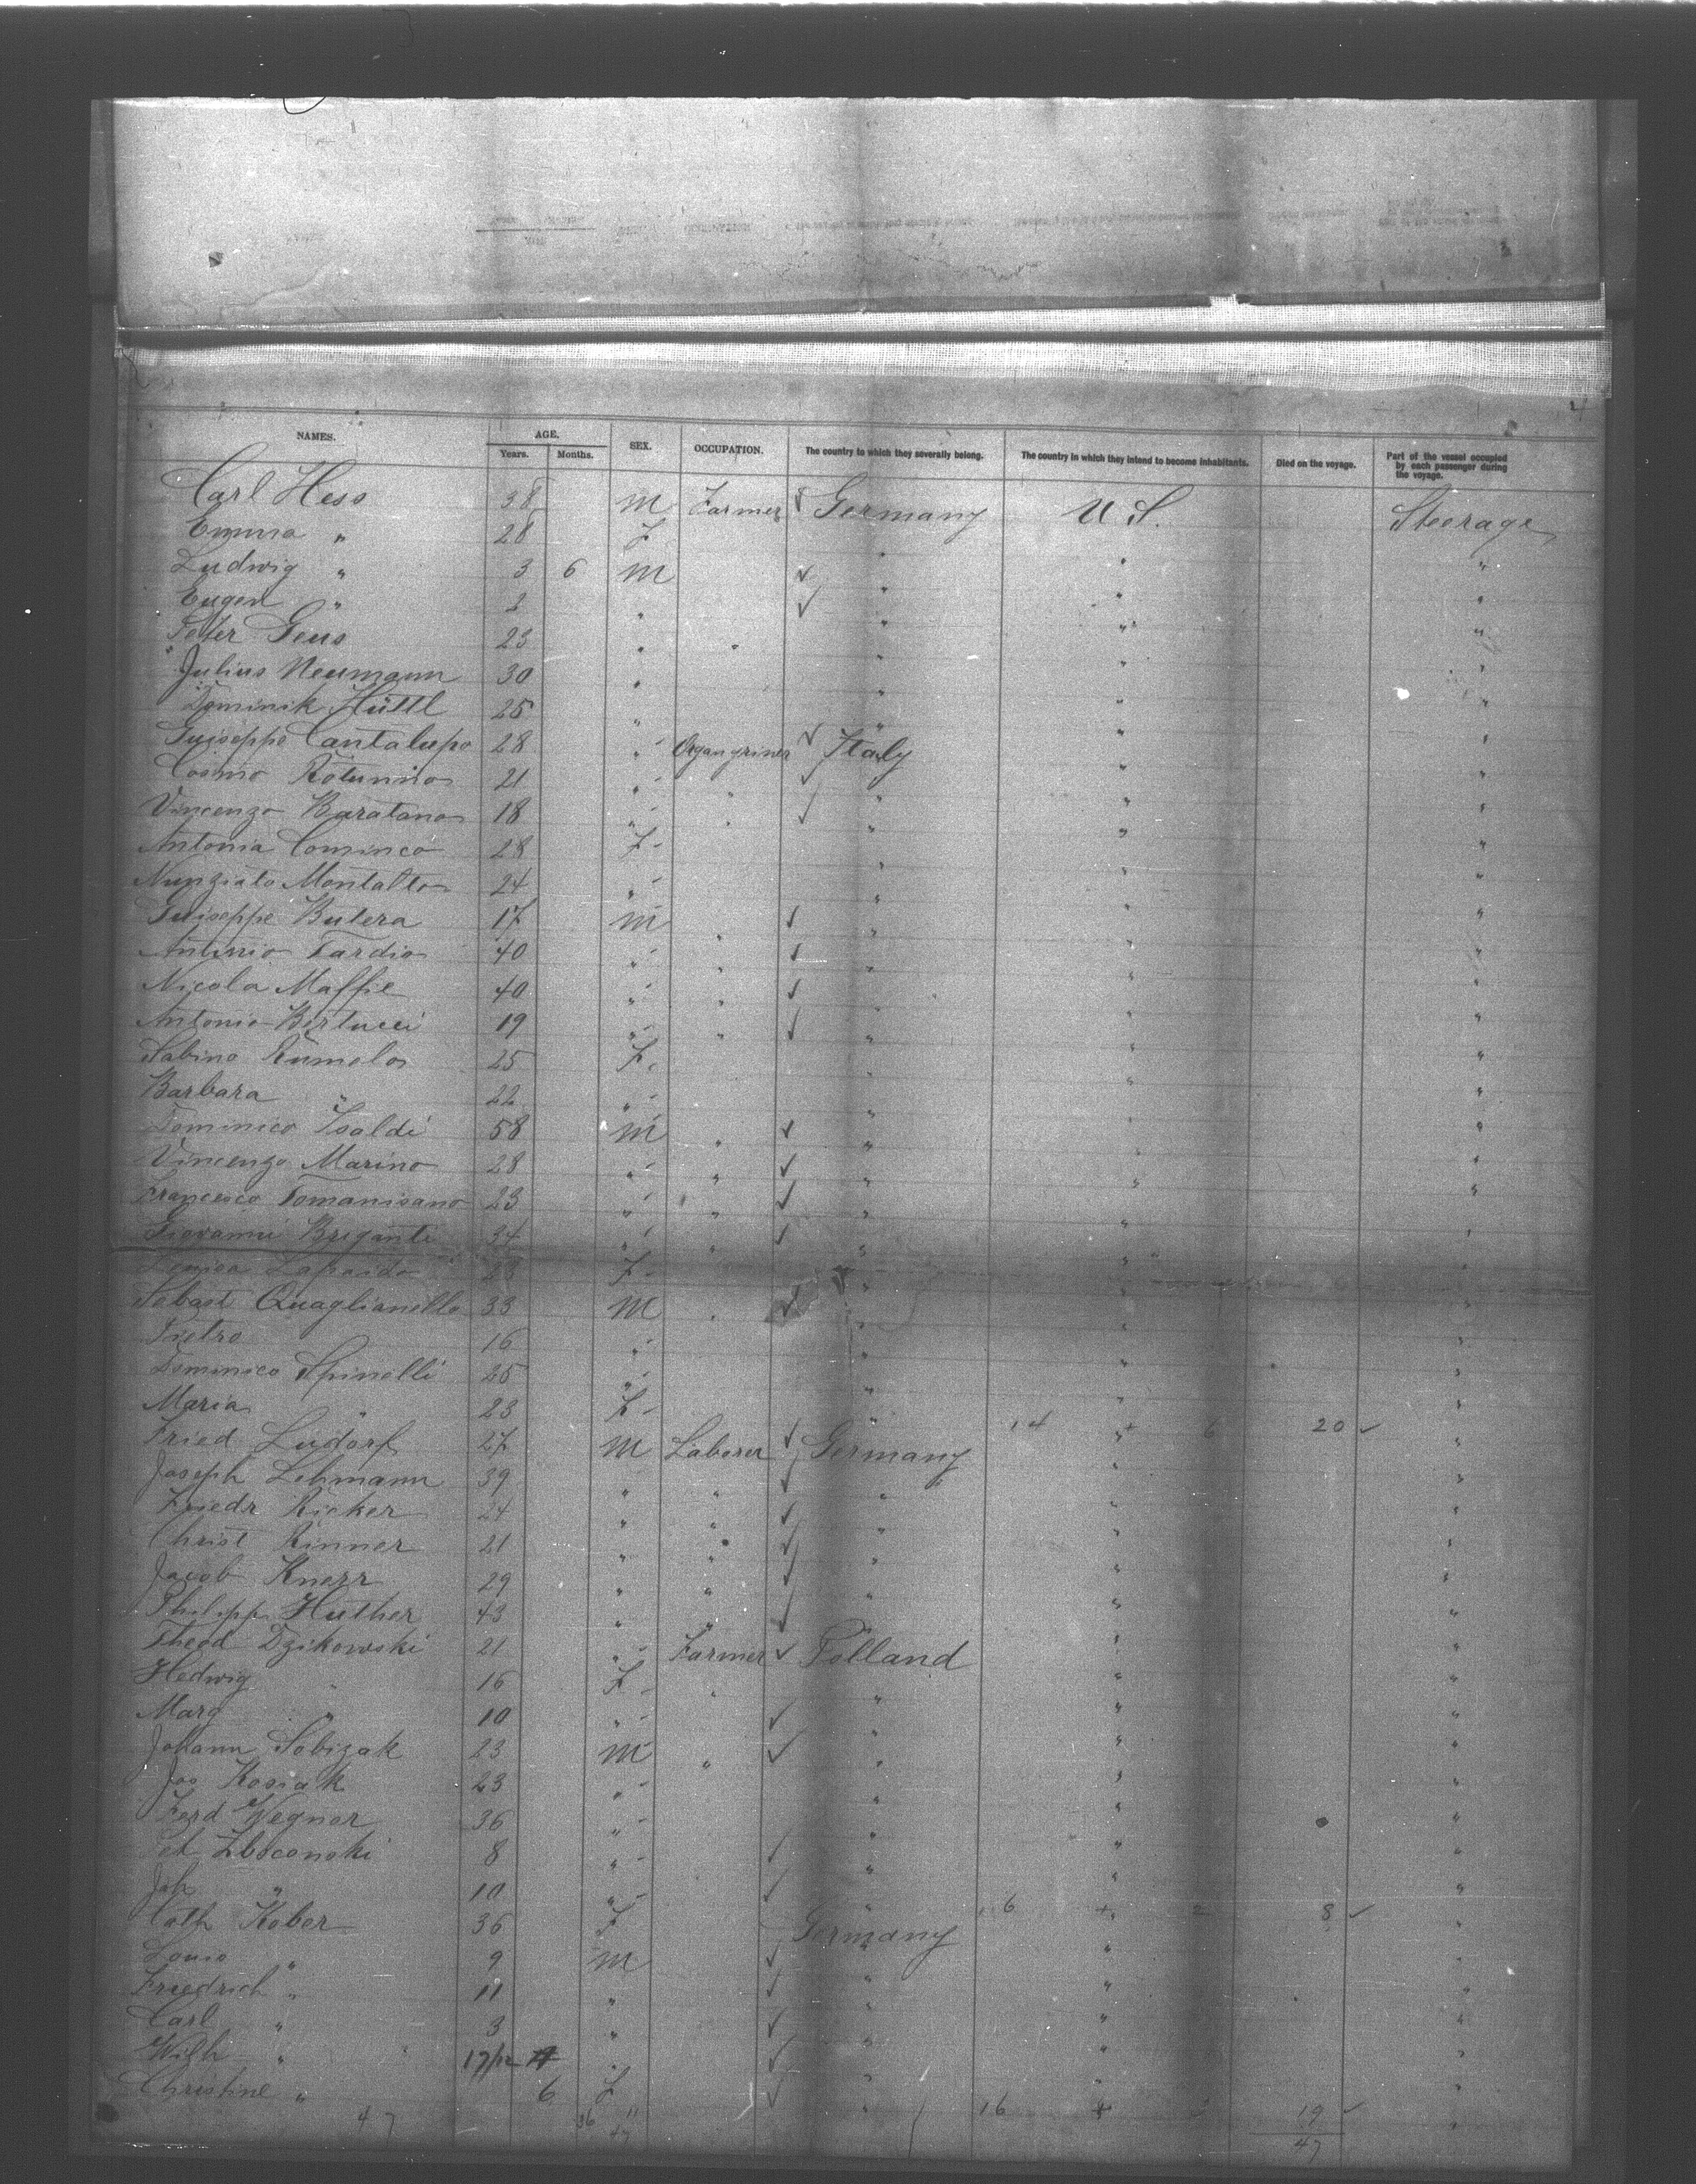 NAMES. AGE. Years. Months. SEX. OCCUPATION. The country to which they severally belong. The country in which they intend to become inhabitants. Died on the voyage. Part of the vessel occupied by each passenger during the voyage.
Carl Hess 38 M Farmer Germany U S. Steerage
Emma " 28 F " " "
Ludwig " 3 6 M " " "
Eugen " 2 " " " "
Peter Geus 23 " " " " "
Julius Neumann 30 " " " "
Dominik Hüttl 25 " " " "
Guiseppe Cantalupo 28 " Organgriner Italy " "
Cosmo 21 " " " " "
Vincenzo Baratano 18 " " " " "
Antonia Cominco 28 F " " "
Nunziato Montalto 24 " " " "
Guiseppe Butera 17 M " " " "
Antonio Tardio 40 " " " " "
Nicola Maffie 40 " " " " "
Antonio Bertucci 19 " " " " "
Sabino Rumolo 25 F " " "
Barbara " 22 " " " "
Dominico Isaldi 58 M " " " "
Vincenzo Marino 28 " " " " "
Francesco Tomanisano 23 " " " " "
Giovanni Briganti 34 " " " " "
23 F " " "
Sebast Quaglianello 33 M " " " "
Pietro 16 " " " "
Dominico Spinelli 25 " " " "
Maria " 23 F " " "
14 + 6 20
Fried Ludorf 27 M Laborer Germany " "
Joseph Lehmann 39 " " " " "
Friedr Ricker 24 " " " " "
Christ Rinner 21 " " " " "
Jacob Knerr 29 " " " " "
Philipp Huther 43 " " " " "
Theod Dzikowski 21 " Farmer Polland " "
Hedwig " 16 F " " " "
Marg " 10 " " " "
Johann Sobizak 23 M " " " "
Jos Kosiak 23 " " " "
Ferd Wegner 36 " " " "
Pet 8 " " " "
Joh " 10 " " " "
6 + 2 8
Cath Kober 36 F Germany " "
Louis " 9 M " " "
Friedrich " 11 " " " "
Carl " 3 " " " "
Wilh " 17/12 " " " "
Christine " 6 F " " "
47 36 11 16 + 3 19
47 47